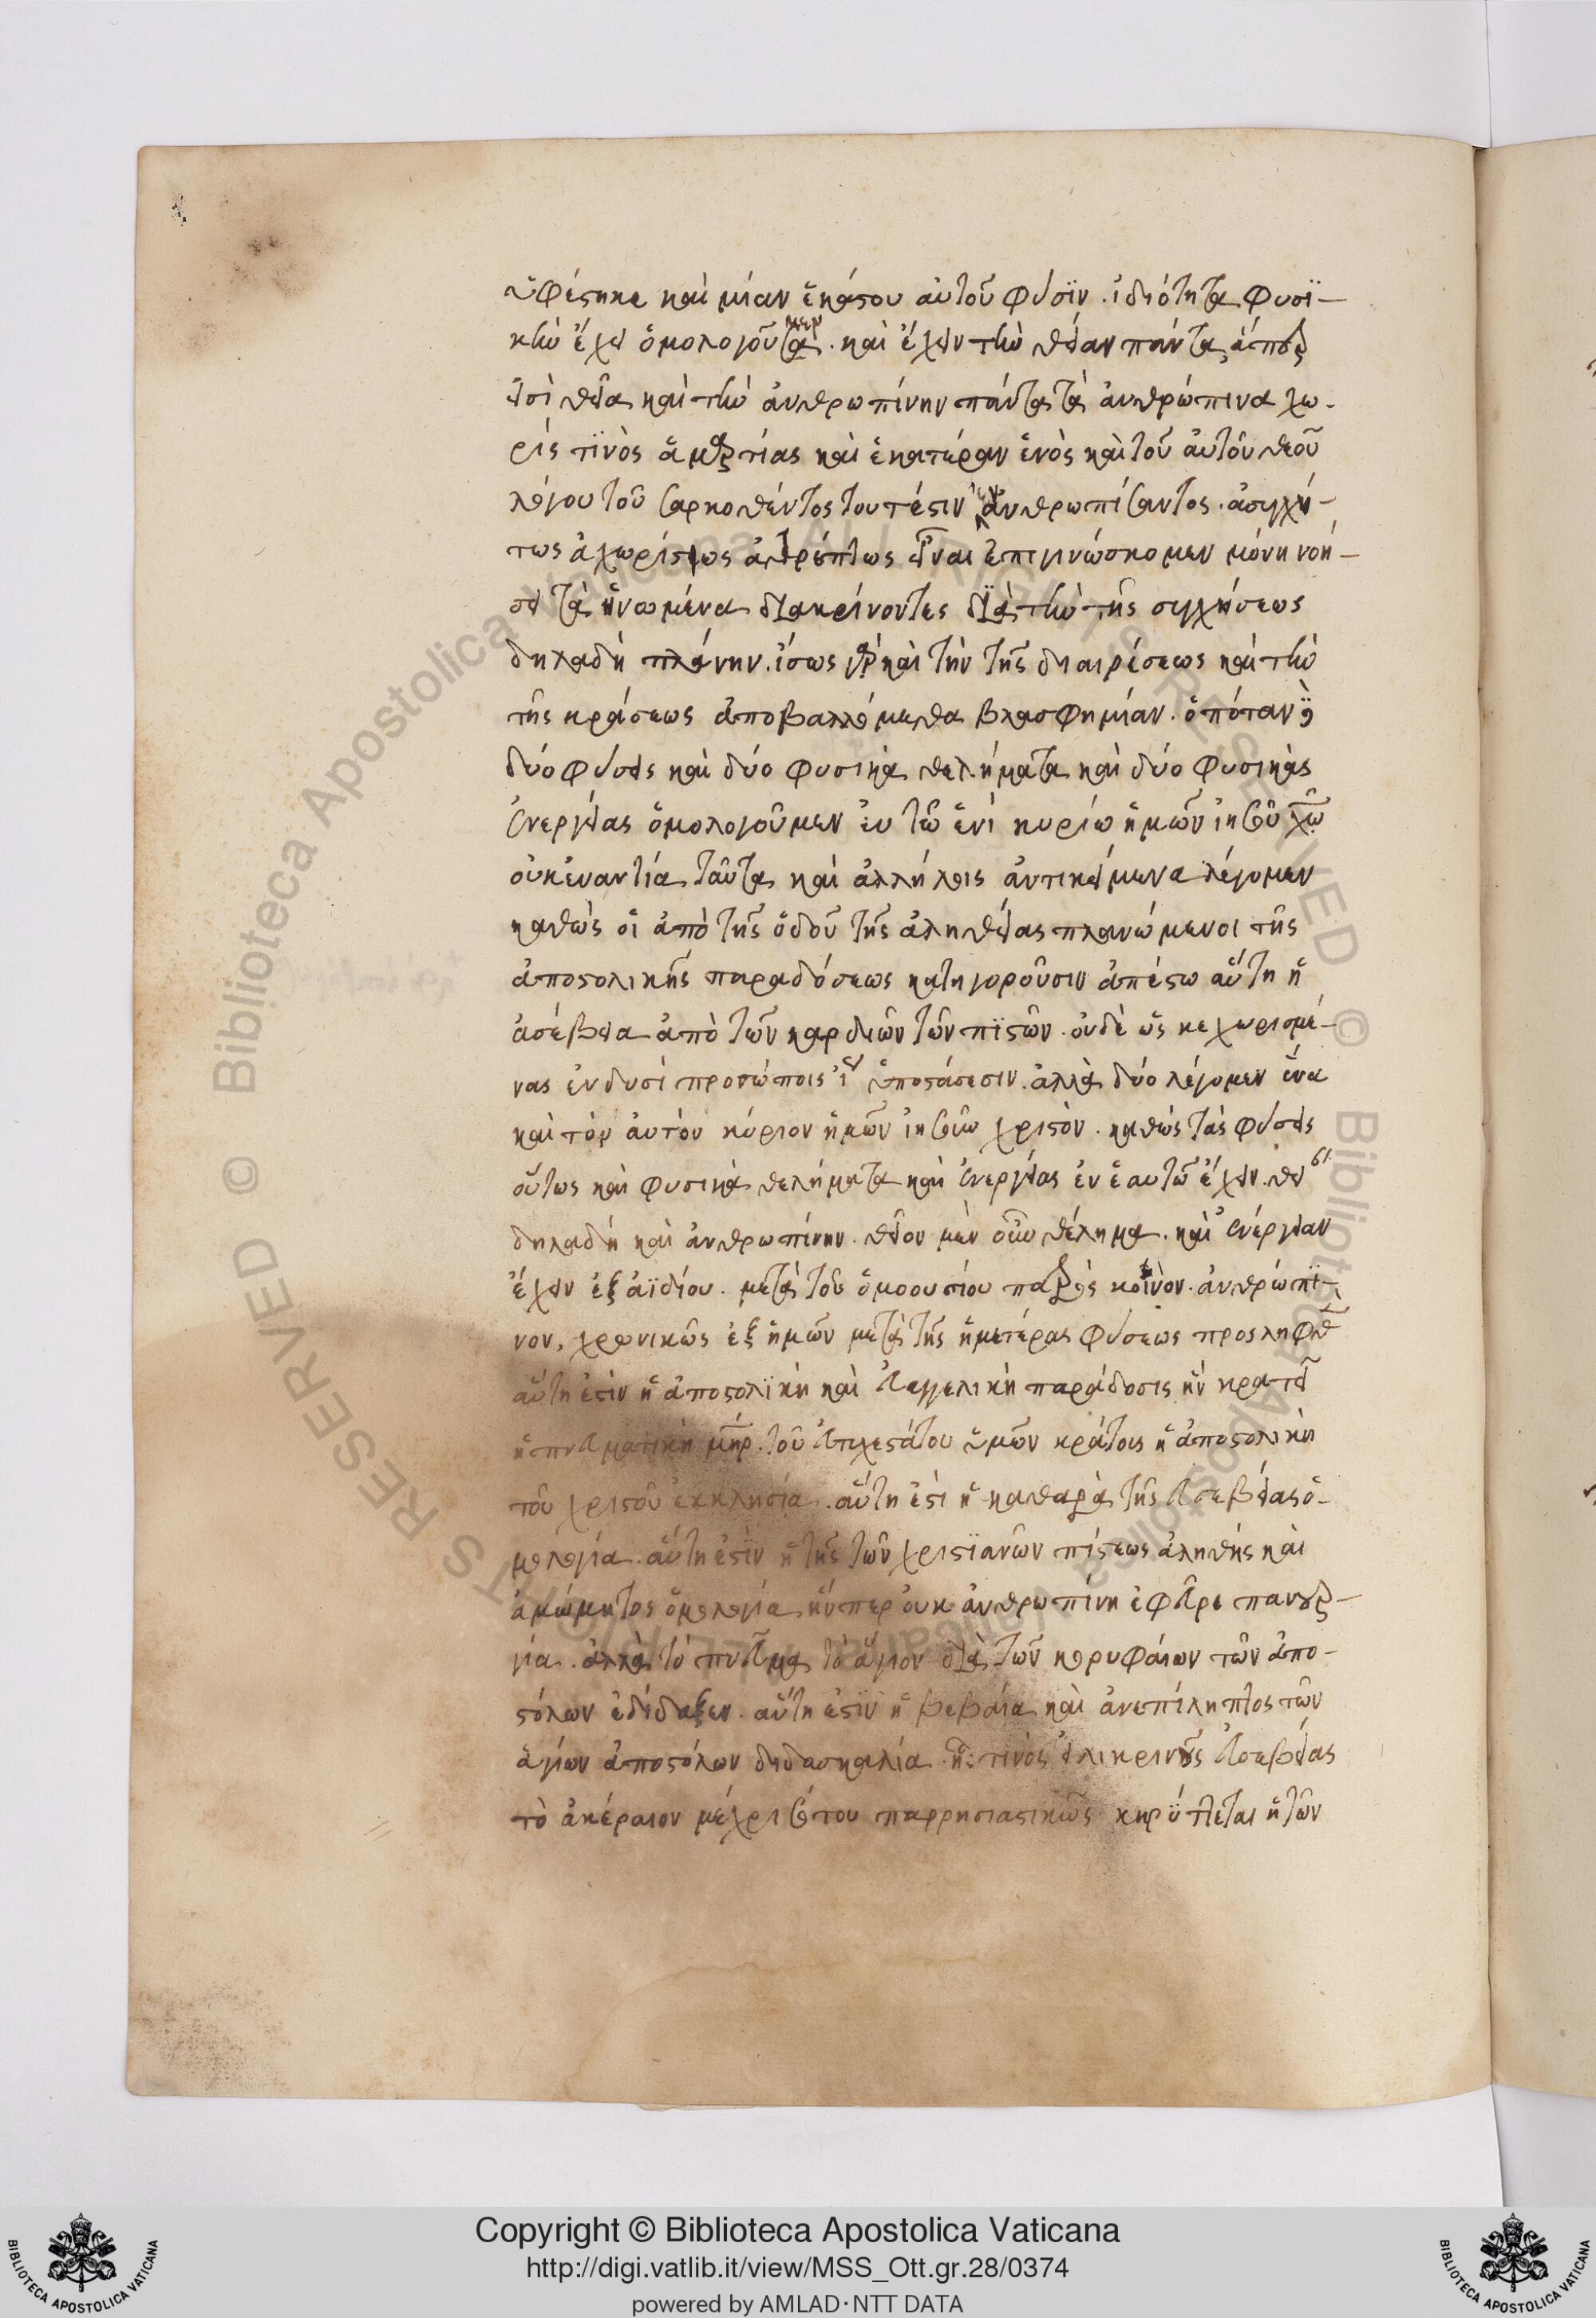 ὑφέστηκε καὶ μίαν ἑκάστου αὐτοῦ φύσϊν. ἰδιότητα φυσϊ-
κὴν ἔχει ὁμολογοῦμεν τα. καὶ ἔχειν τὴν θείαν πάντα ἅπερ
εἰσὶ θεῖα καὶ τὴν ἀνθρωπίνην πάντα τὰ ἀνθρώπινα χω-
ρίς τινὸς ἁμαρτίας καὶ ἑκατέραν ἑνὸς καὶ τοῦ αὐτοῦ θεοῦ
λόγου τοῦ σαρκοθέντος τουτέστιν ἐνανθρωπίσαντος. ἀσυγχύ-
τως ἀχωρίστως ἀτρέπτως εἶναι ἐπιγινώσκομεν μόνη νοή-
σει τὰ ἡνωμένα διακρίνοντες διὰ τὴν τῆς συγχύσεως
δηλαδὴ πλάνην. ἴσως γὰρ καὶ τὴν τῆς διαιρέσεως καὶ τὴν
τῆς κράσεως ἀποβαλλόμεθα βλασφημίαν. ὁπόταν
δύο φύσεις καὶ δύο φυσικὰ θελήματα καὶ δύο φυσικὰς
ἐνεργείας ὁμολογοῦμεν ἐν τῶ ἑνί κυρίω ἡμῶν ἰησοῦ χῶ
οὐκ ἐναντία ταῦτα καὶ ἀλλήλοις ἀντικείμενα λέγομεν
καθὼς οἱ ἀπὸ τῆς ὁδοῦ τῆς ἀληθείας πλανώμενοι τῆς
ἀποστολικῆς παραδόσεως κατηγοροῦσιν ἀπέστω αὕτη ἡ
ἀσέβεια ἀπὸ τῶν καρδιῶν τῶν πϊστῶν. οὐδὲ ὡς κεχωρισμέ-
νας ἐν δυσὶ προσώποις ἢ ὑποστάσεσιν. ἀλλὰ δύο λέγομεν ἕνα
καὶ τὸν αὐτὸν κύριον ἡμῶν ἰησοῦν χριστὸν. καθὼς τὰς φύσεις
οὕτως καὶ φυσικὰ θελήματα καὶ ἐνεργείας ἐν ἑαυτῶ ἔχειν. θεί
δηλαδὴ καὶ ἀνθρωπίνην. θεῖον μὲν οὖν θέλημα. καὶ ἐνέργειαν
ἔχειν ἐξ ἀϊδίου. μετὰ τοῦ ὁμοουσίου πατρὸς κοινὸν. ἀνθρώπϊ-
νον, χρονικῶς ἐξ ἡμῶν μετὰ τῆς ἡμετέρας φύσεως προσληφθ
αὕτη ἐστὶν ἡ ἀποστολϊκὴ καὶ εὐαγγελικὴ παράδοσις ἣν κρατεῖ
ἡ πνευματικὴ μήρ. τοῦ εὐτυχεστάτου ὑμῶν κράτους ἡ ἀποστολικὴ
τοῦ χριστοῦ ἐκκλησία. αὕτη ἐστὶ ἡ καθαρὰ τῆς εὐσεβείας ὁ-
μολογία. αὕτη ἐστϊν ἡ τῆς τῶν χριστϊανῶν πίστεως ἀληθής καὶ
ἀμώμητος ὁμολογία, ἥνπερ οὐκ ἀνθρωπίνη ἐφεῦρε πανουρ-
γία. ἀλλὰ τὸ πνεῦμα τὸ ἅγιον διὰ τῶν κορυφαίων τῶν ἀπο-
στόλων ἐδίδαξεν. αὕτη ἐστϊν ἡ βεβαία καὶ ἀνεπίληπτος τῶν
ἁγίων ἀποστόλων διδασκαλία. ἧς τινὸς εἰλικρινοῦς εὐσεβείας
τὸ ἀκέραιον μέχρις ὅτου παρρησιαστικῶς κηρύττεται ἡ τῶν
Copyright © Biblioteca Apostolica Vaticana
http://digi.vatlib.it/view/MSS_Ott.gr.28/0374
powered by AMLAD·NTT DATA